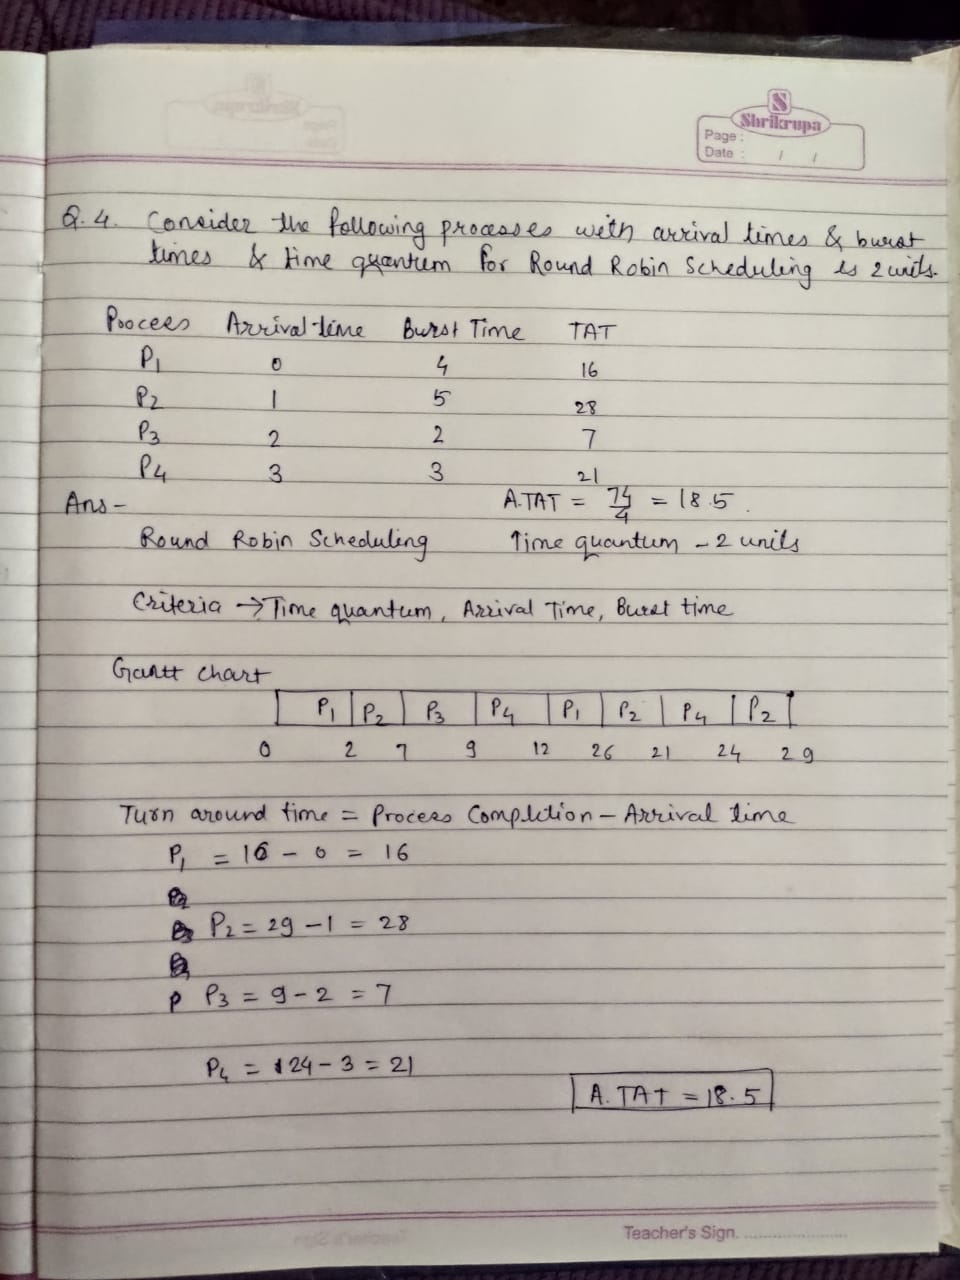 S
Shrikrupa
Page :
Date : / /
Q.4. Consider the following processes with arrival times & burst
times & time quantum for Round Robin Scheduling is 2 units.
Process Arrival time Burst Time TAT
P1 0 4 16
P2 1 5 28
P3 2 2 7
P4 3 3 21
Ans - A.TAT = 74/4 = 18.5.
Round Robin Scheduling Time quantum - 2 units
Criteria → Time quantum, Arrival Time, Burst time
Gantt chart
P1 | P2 | P3 | P4 | P1 | P2 | P4 | P2
0 2 7 9 12 26 21 24 29
Turn around time = Process Complction - Arrival time
P1 = 16 - 0 = 16
P2 = 29 - 1 = 28
P P3 = 9 - 2 = 7
P4 = 24 - 3 = 21
A. TAT = 18.5
Teacher's Sign. ........................